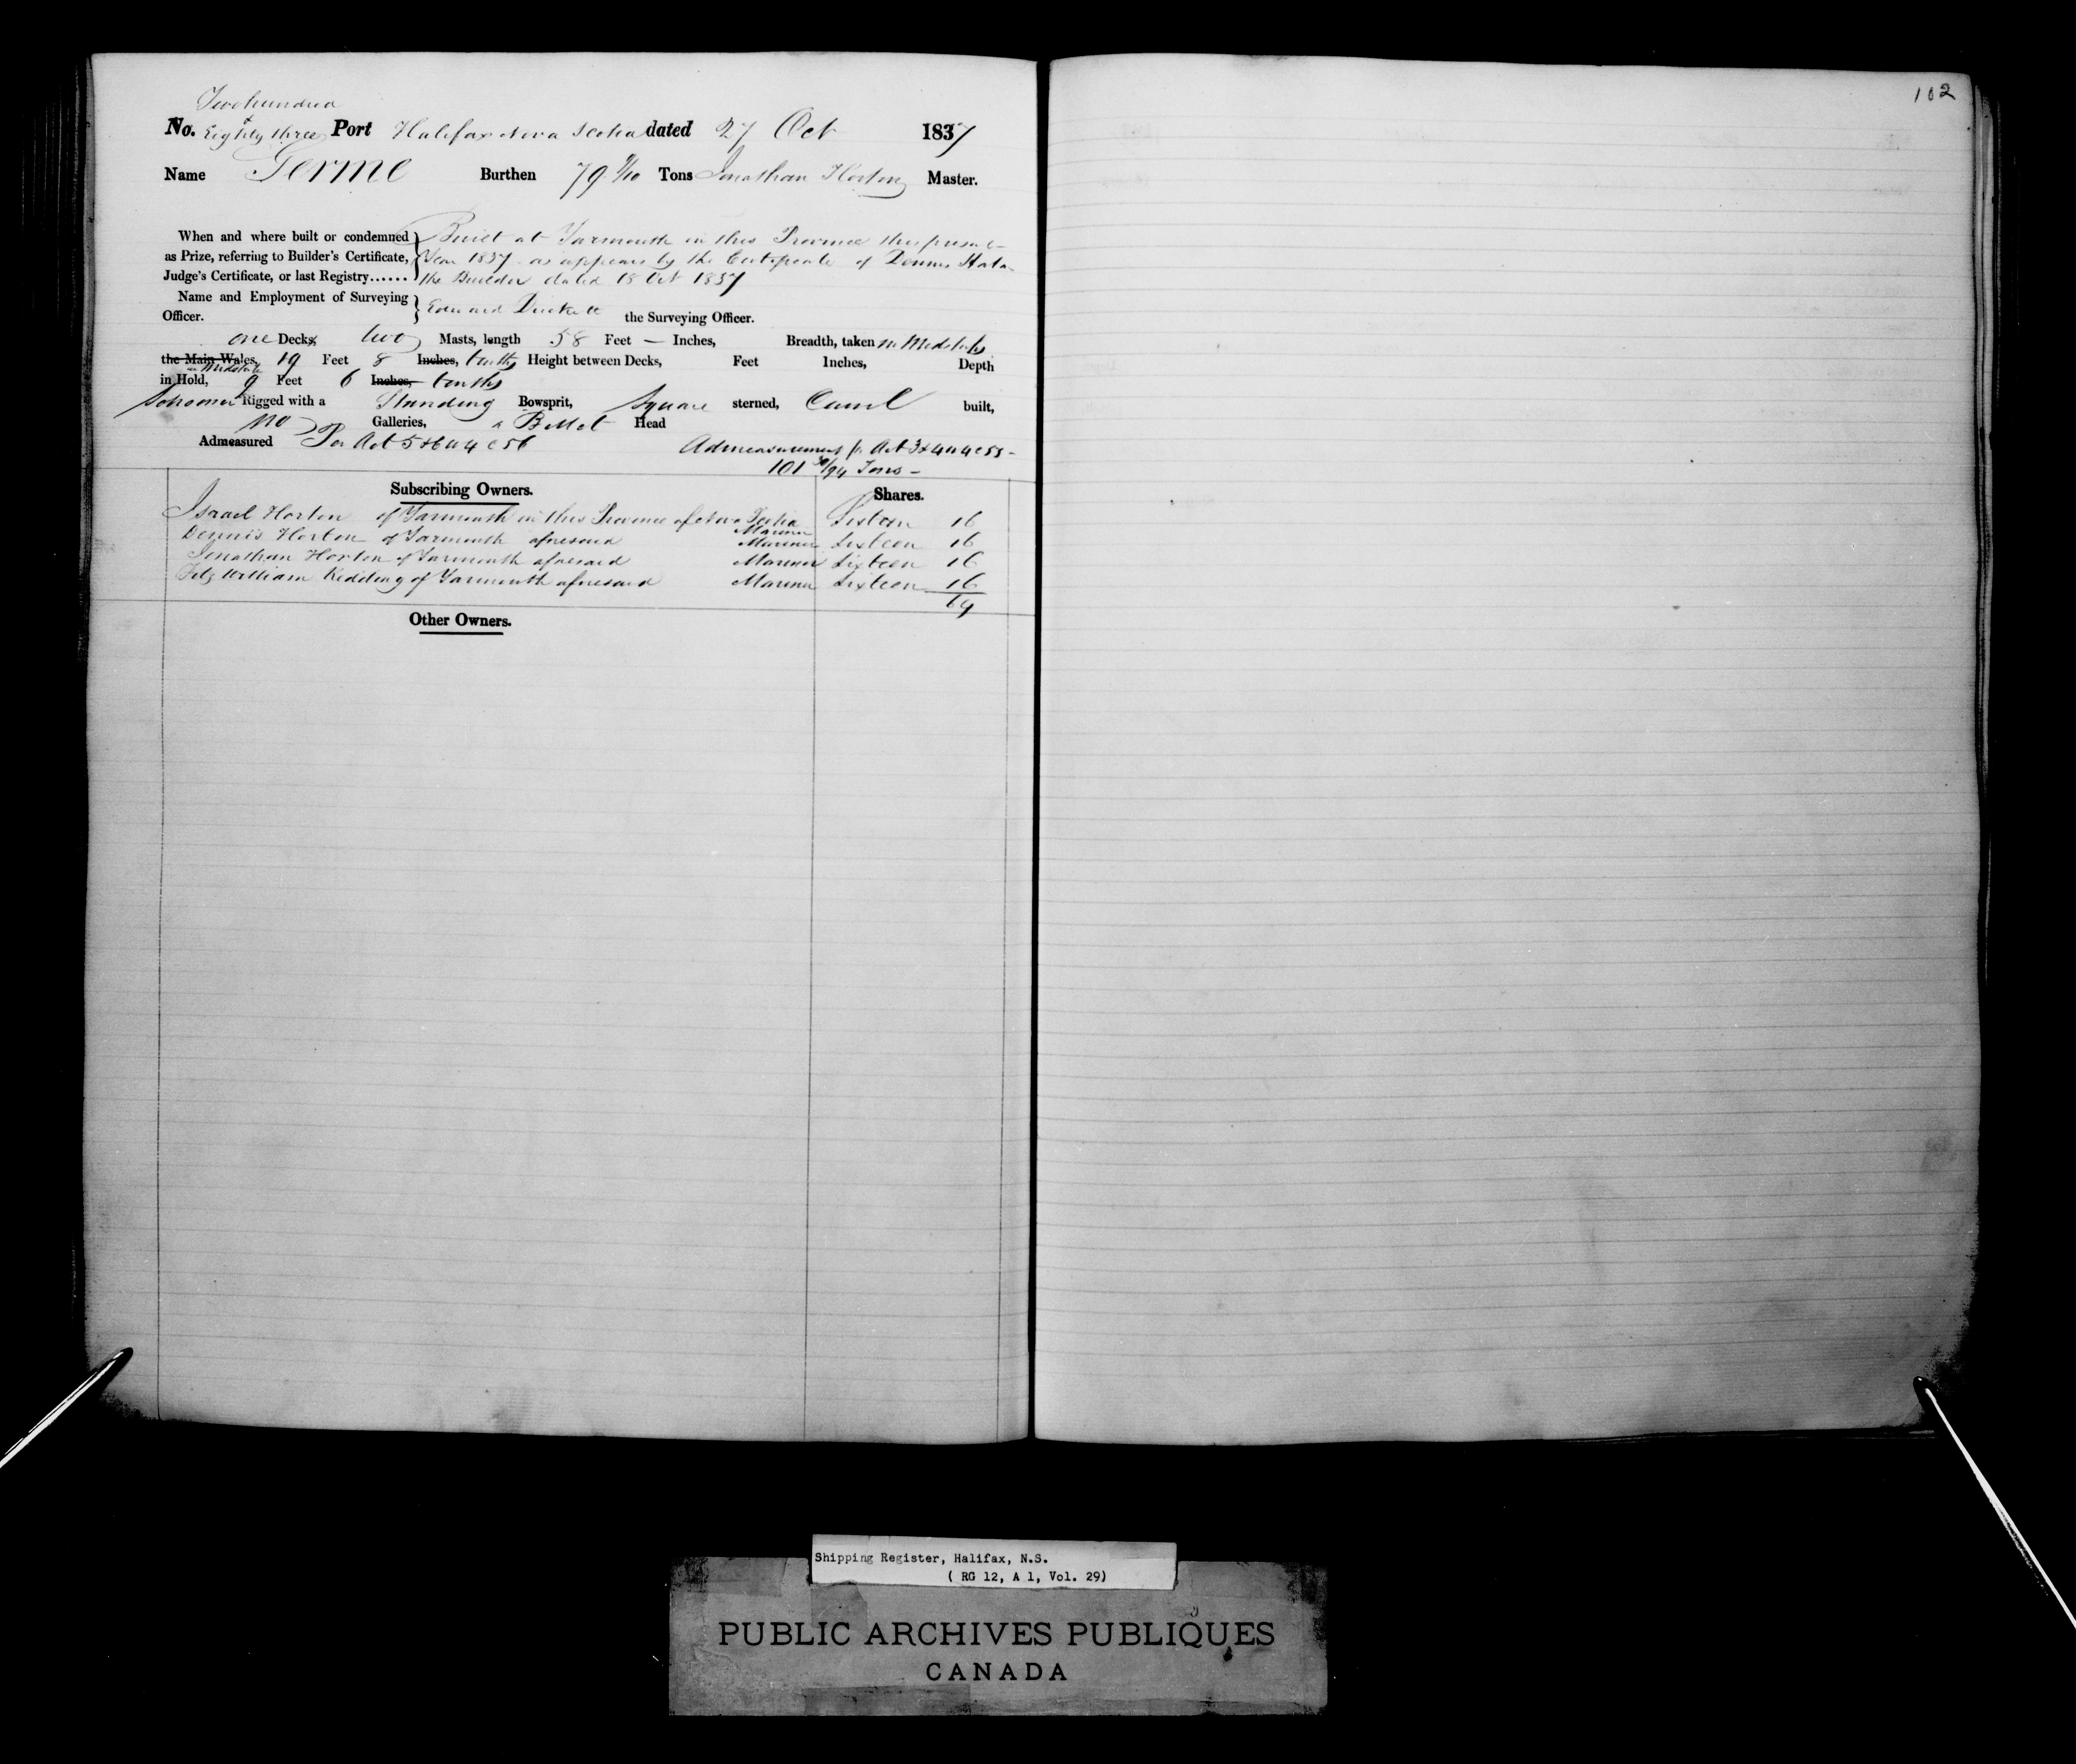 102
Two hundred
No. & Eighty three Port Halifax Nova Scotia dated 27 Oct 1837
Name Burthen 79 Tons Jonathan Horton Master.
When and where built or condemned Built at Yarmouth in this Province this present
as Prize, referring to Builder's Certificate, Year 1837 as appears by the Certificate of Dennis
Judge's Certificate, or last Registry...... the Builder dated 18 Oct 1837
Name and Employment of Surveying
Officer. Edward the Surveying Officer.
one Decks, two Masts, length 58 Feet — Inches, Breadth, taken in Midships
the Main Wales, 19 Feet 8 Inches, tenths Height between Decks, Feet Inches, Depth
in Midships
in Hold, 9 Feet 6 Inches, tenths
Schooner Rigged with a Standing Bowsprit, Square sterned, Carvel built,
no Galleries, a Billet Head
Admeasured Per Act 5 & 6 W 4 c 56 Admeasurement pr Act 3 & 4 W 4 c 55 -
101 30/94 Tons -
Subscribing Owners. Shares.
Israel Horton of Yarmouth in this Province of Nova Scotia Mariner Sixteen 16
Dennis Horton of Yarmouth aforesaid Mariner Sixteen 16
Jonathan Horton of Yarmouth aforesaid Mariner Sixteen 16
Fitz William Redding of Yarmouth aforesaid Mariner Sixteen 16
64
Other Owners.
Shipping Register, Halifax, N.S.
( RG 12, A 1, Vol. 29)
PUBLIC ARCHIVES PUBLIQUES
CANADA